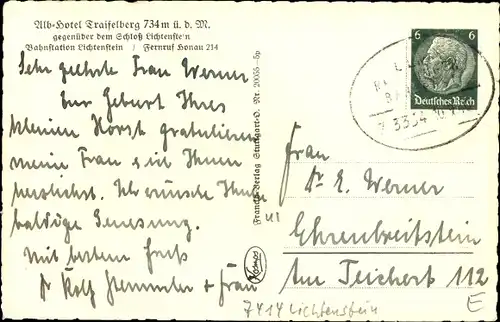 Alb-Hotel Traifelberg 734 m ü. d. M.
gegenüber dem Schloß Lichtenstein
Bahnstation Lichtenstein / Fernruf Honau 214
Sehr geehrte Frau Werner
Zur Geburt Ihres
kleinen Horst gratulieren
meine Frau & ich Ihnen
herzlichst. Ich wünsche Ihnen
baldige Genesung.
Mit bestem Gruß
Dr Rolf Hemmler + Frau
Franckh-Verlag Stuttgart-O. Nr. 20035
Kosmos
6 6
Deutsches Reich
3334
Frau
Dr E. Werner
Ehrenbreitstein
Am Teichert 112
7414 Lichtenstein
E